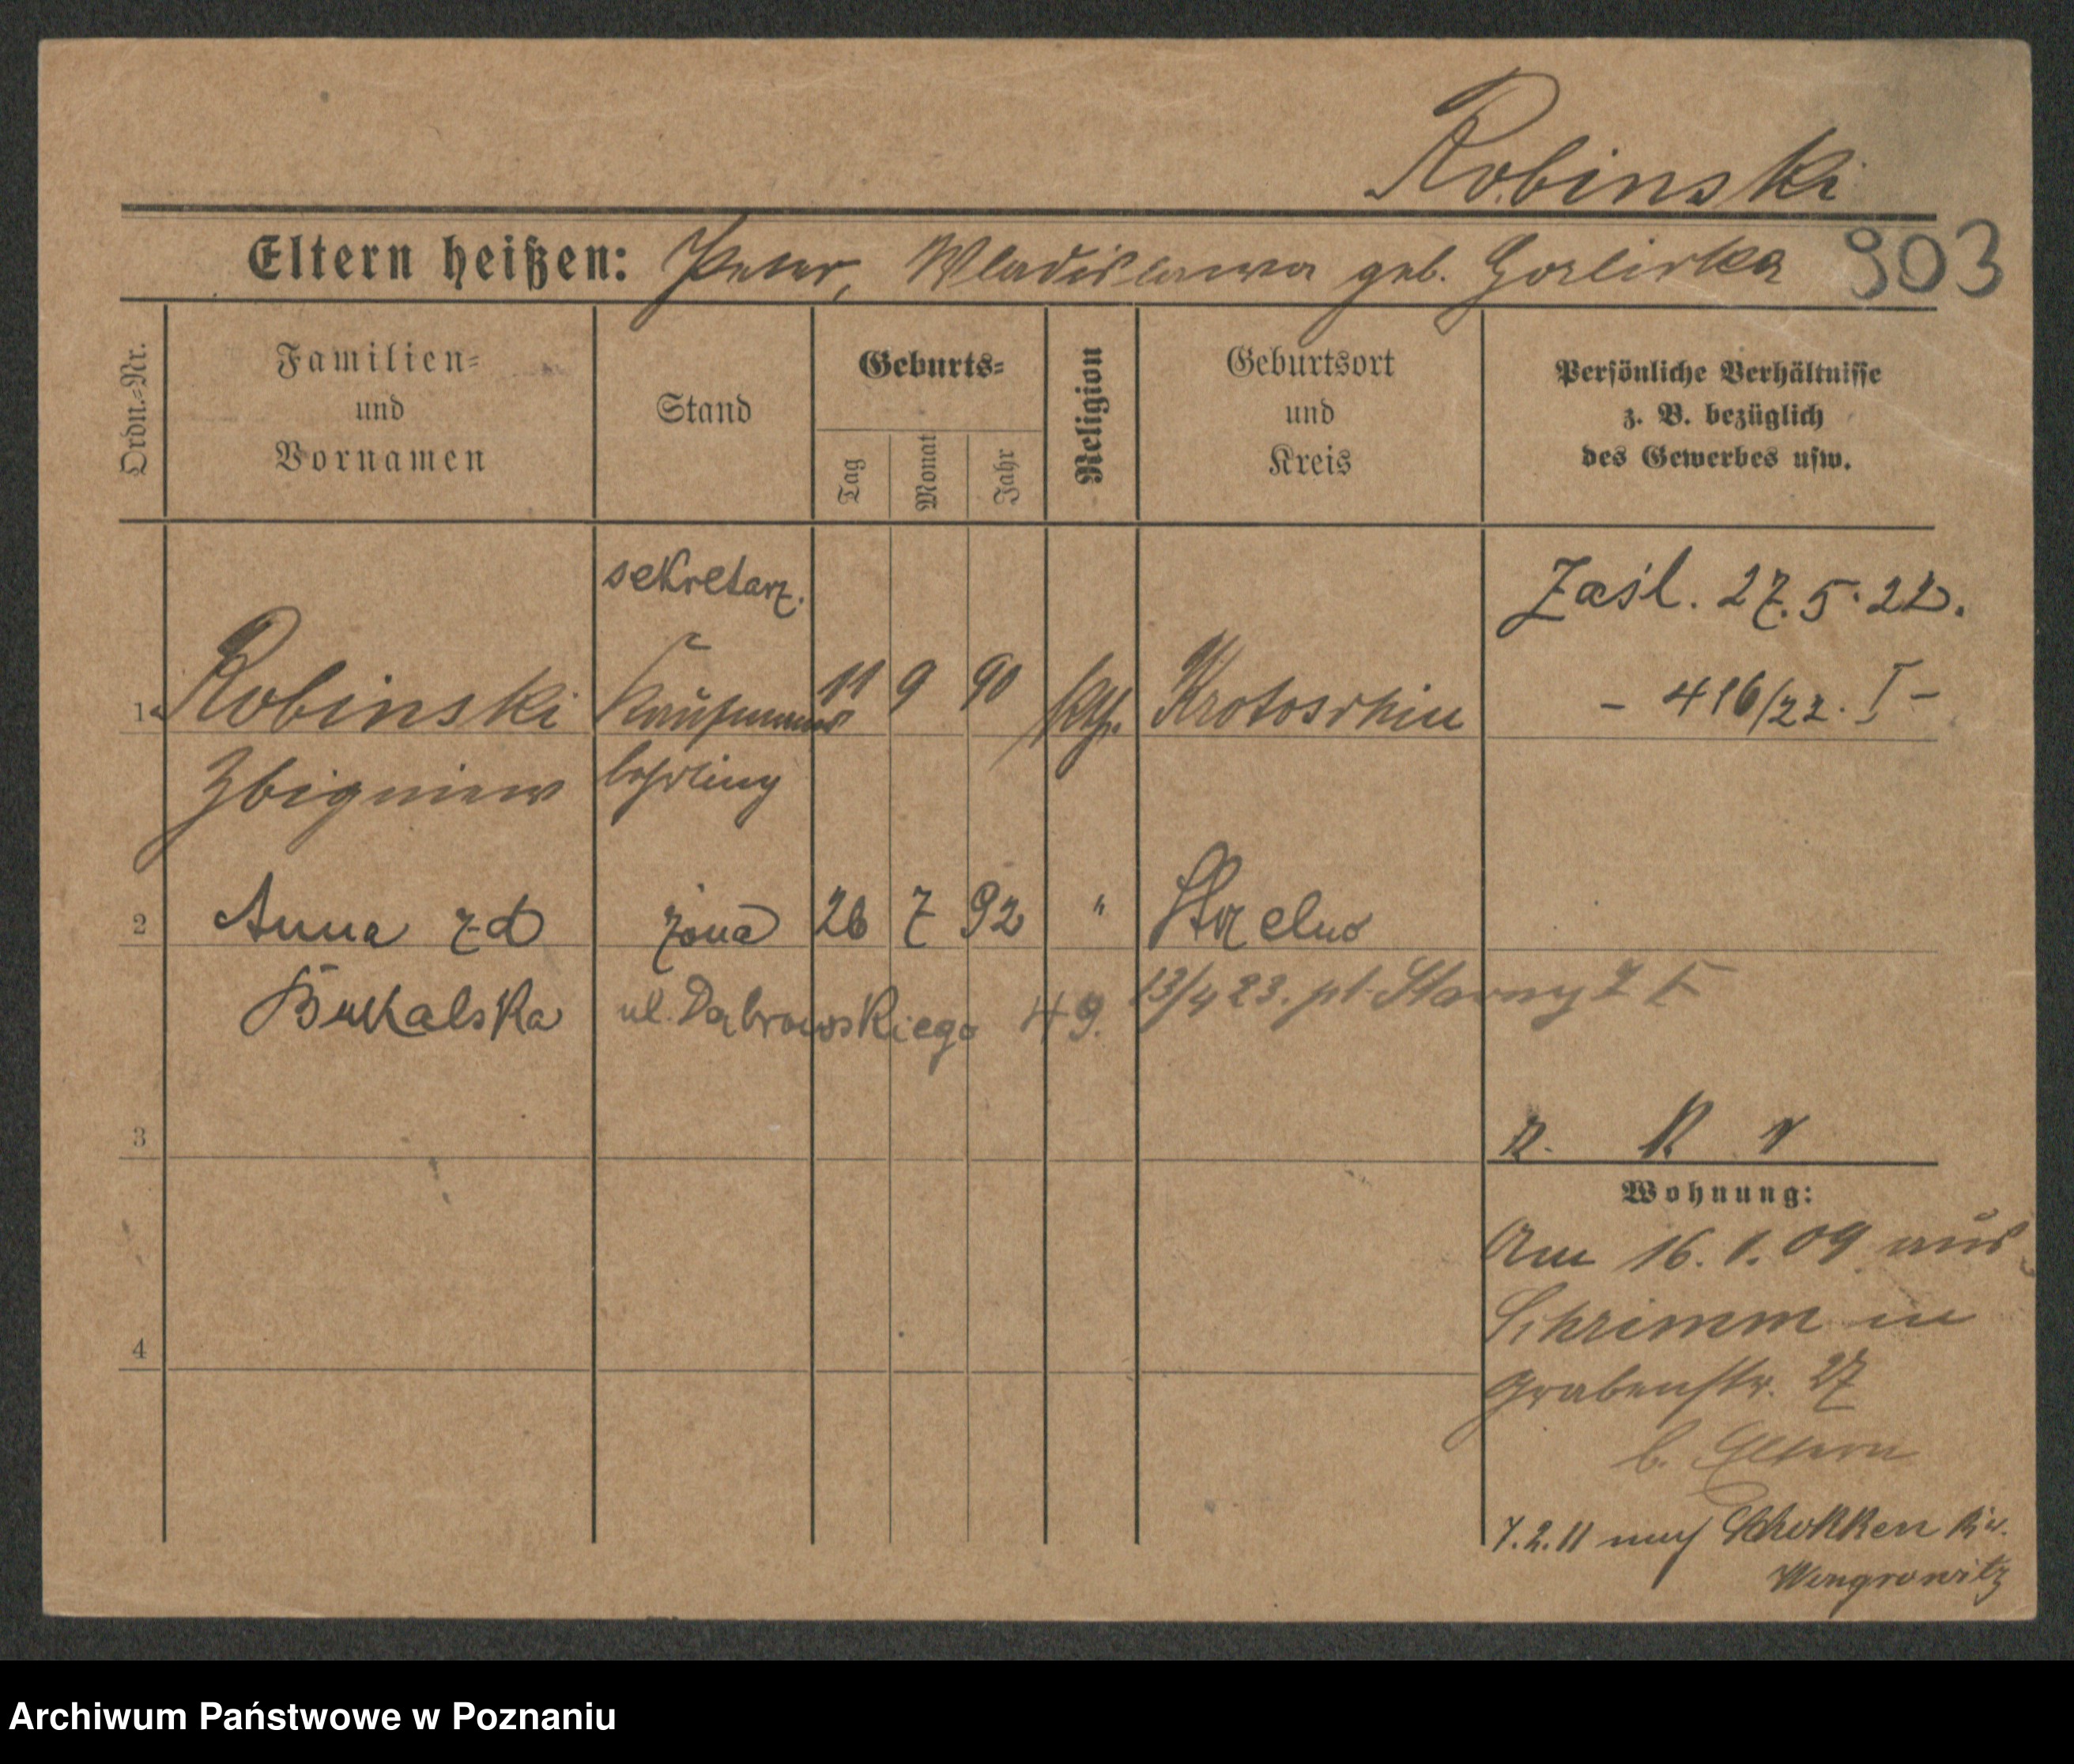 Robinski
Eltern heißen: Peter, Wladislawa geb. Gorlirka 903
Ordn.-Nr.
Familien-
und
Vornamen
Stand
Geburts-
Tag
Monat
Jahr
Religion
Geburtsort
und
Kreis
Persönliche Verhältnisse
z. B. bezüglich
des Gewerbes usw.
sekretarz.
Zaśl. 27.5.22.
1 Robinski Kaufmanns 11 9 90 kth. Krotoschin - 416/22. I -
Zbigniew lehrling
2 Anna z d żona 26 7 92 " Strzelno
Bukalska ul. Dąbrowskiego 49. 13/4 23. pl.
3
Wohnung:
Am 16. 1. 09 aus
Schrimm in
4
Grabenstr. 27
b. Eltern
7.2.11 nach Schokken Kr.
Wongrowitz
Archiwum Państwowe w Poznaniu